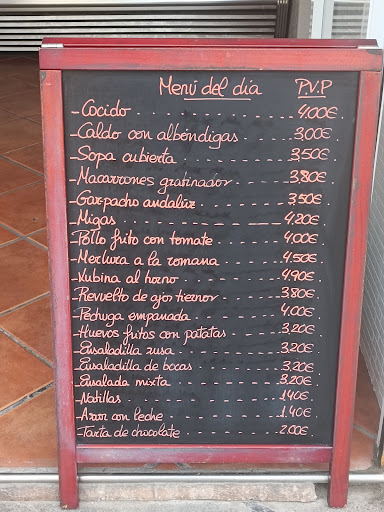 Menú del día P.V.P
- Cocido - - - - - - - - - - 4,00€
- Caldo con albóndigas - - - - 3,00€
- Sopa cubierta - - - - - - - 3,50€
- Macarrones gratinados - - - - 3,80€
- Gazpacho andaluz - - - - - 3,50€
- Migas - - - - - - - - - - 4,20€
- Pollo frito con tomate - - - - 4,00€
- Merluza a la romana - - - - 4,50€
- Lubina al horno - - - - - - 4,90€
- Revuelto de ajos tiernos - - - 3,80€
- Pechuga empanada - - - - - 4,00€
- Huevos fritos con patatas - - - 3,20€
- Ensaladilla rusa - - - - - - 3,20€
- Ensaladilla de bocas - - - - - 3,20€
- Ensalada mixta - - - - - - - 3,20€
- Natillas - - - - - - - - - 1,40€
- Arroz con leche - - - - - - 1,40€
- Tarta de chocolate - - - - - 2,00€